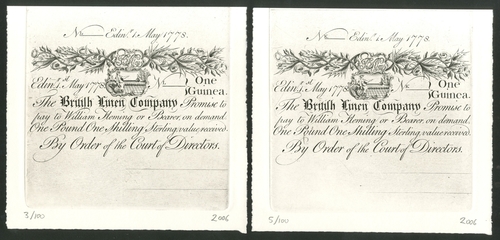 No Edinr. 1 May 1778.
Edinr. 1st May 1778 No One
Guinea.
The British Linen Company Promise to
pay to William Fleming or Bearer, on demand
One Pound One Shilling Sterling, value received.
By Order of the Court of Directors.
3/100 2006
No Edinr. 1 May 1778.
Edinr. 1st May 1778 No One
Guinea.
The British Linen Company Promise to
pay to William Fleming or Bearer, on demand
One Pound One Shilling Sterling, value received.
By Order of the Court of Directors.
5/100 2006